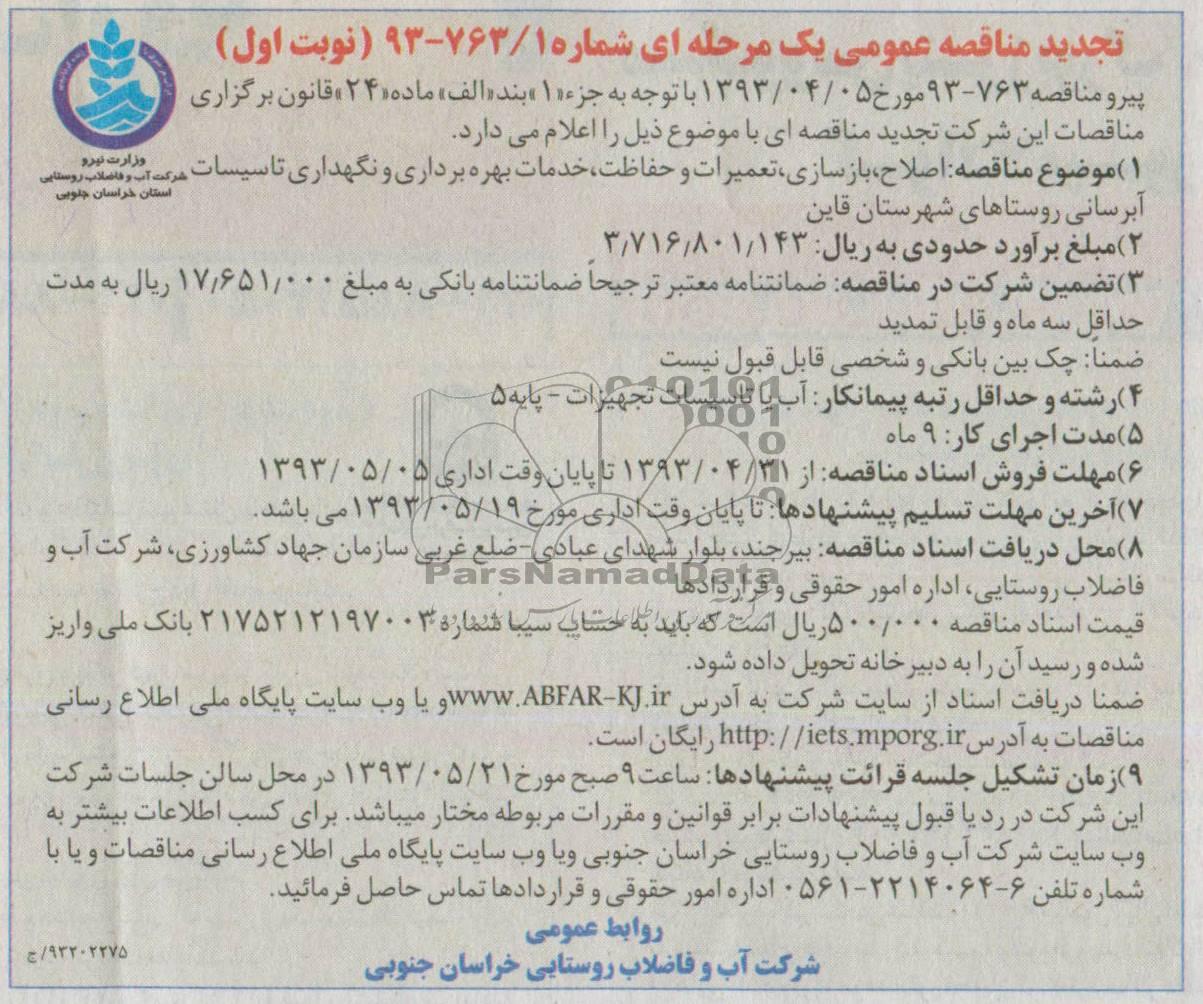 تجدید مناقصه عمومی یک مرحله ای شماره ۹۳-۷۶۳/۱ (نوبت اول)
وزارت نیرو
شرکت آب و فاضلاب روستایی
استان خراسان جنوبی
پیرو مناقصه ۷۶۳-۹۳ مورخ ۱۳۹۳/۰۴/۰۵ با توجه به جزء «۱» بند «الف» ماده «۲۴» قانون برگزاری
مناقصات این شرکت تجدید مناقصه ای با موضوع ذیل را اعلام می دارد.
۱)موضوع مناقصه: اصلاح،بازسازی،تعمیرات و حفاظت،خدمات بهره برداری و نگهداری تاسیسات
آبرسانی روستاهای شهرستان قاین
۲)مبلغ برآورد حدودی به ریال: ۳٫۷۱۶٫۸۰۱٫۱۴۳
۳)تضمین شرکت در مناقصه: ضمانتنامه معتبر ترجیحاً ضمانتنامه بانکی به مبلغ ۱۷٫۶۵۱٫۰۰۰ ریال به مدت
حداقل سه ماه و قابل تمدید
ضمناً: چک بین بانکی و شخصی قابل قبول نیست
۴)رشته و حداقل رتبه پیمانکار: آب یا تاسیسات تجهیزات - پایه۵
۵)مدت اجرای کار: ۹ ماه
۶)مهلت فروش اسناد مناقصه: از ۱۳۹۳/۰۴/۳۱ تا پایان وقت اداری ۱۳۹۳/۰۵/۰۵
۷)آخرین مهلت تسلیم پیشنهادها: تا پایان وقت اداری مورخ ۱۳۹۳/۰۵/۱۹ می باشد.
۸)محل دریافت اسناد مناقصه: بیرجند، بلوار شهدای عبادی-ضلع غربی سازمان جهاد کشاورزی، شرکت آب و
فاضلاب روستایی، اداره امور حقوقی و قراردادها
قیمت اسناد مناقصه ۵۰۰٫۰۰۰ریال است که باید به حساب سیبا شماره ۲۱۷۵۲۱۲۱۹۷۰۰۳ بانک ملی واریز
شده و رسید آن را به دبیرخانه تحویل داده شود.
ضمنا دریافت اسناد از سایت شرکت به آدرس www.ABFAR-KJ.ir و یا وب سایت پایگاه ملی اطلاع رسانی
مناقصات به آدرس http://iets.mporg.ir رایگان است.
۹)زمان تشکیل جلسه قرائت پیشنهادها: ساعت ۹ صبح مورخ ۱۳۹۳/۰۵/۲۱ در محل سالن جلسات شرکت
این شرکت در رد یا قبول پیشنهادات برابر قوانین و مقررات مربوطه مختار میباشد. برای کسب اطلاعات بیشتر به
وب سایت شرکت آب و فاضلاب روستایی خراسان جنوبی ویا وب سایت پایگاه ملی اطلاع رسانی مناقصات و یا با
شماره تلفن ۶-۲۲۱۴۰۶۴-۰۵۶۱ اداره امور حقوقی و قراردادها تماس حاصل فرمائید.
روابط عمومی
شرکت آب و فاضلاب روستایی خراسان جنوبی
۹۳۲۰۲۲۷۵/ج
ParsNamadData